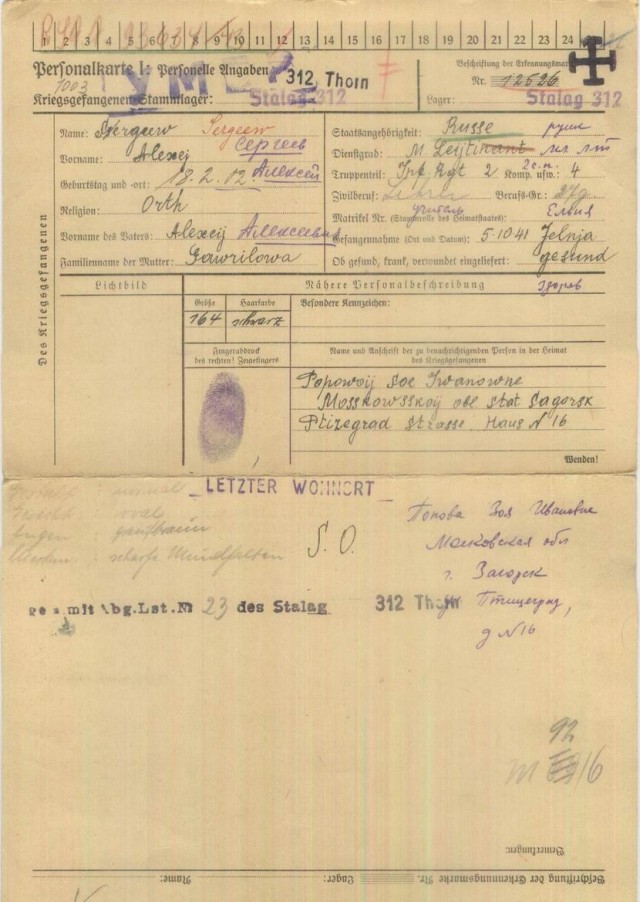 1 2 3 4 5 6 7 8 9 10 11 12 13 14 15 16 17 18 19 20 21 22 23 24
Personalkarte I: Personelle Angaben
УМЕР
312, Thorn
Beschriftung der Erkennungsmarke
Nr. 12526
1003
Kriegsgefangenen-Stammlager: Stalag 312
Lager: Stalag 312
Des Kriegsgefangenen
Name: Sergeew Sergeew
Сергеев
Vorname: Alexej Алексей
Geburtstag und -ort: 18.2.02
Religion: Orth
Vorname des Vaters: Alexeij Алексеевич
Familienname der Mutter: Gawrilowa
Staatsangehörigkeit: Russe русск
Dienstgrad: M Leijtinant
Truppenteil: Inf. Rgt 2 Komp. usw.: 4
Zivilberuf: Lehrer Berufs-Gr.: 27g
учитель
Matrikel Nr. (Stammrolle des Heimatstaates) Ельня
Gefangennahme (Ort und Datum): 5.10.41 Jelnja
Ob gesund, krank, verwundet eingeliefert: gesund
здоров
Lichtbild
Nähere Personalbeschreibung
Größe
Haarfarbe
Besondere Kennzeichen:
164
schwarz
Fingerabdruck
des rechten! Zeigefingers
Name und Anschrift der zu benachrichtigenden Person in der Heimat
des Kriegsgefangenen
Popowoij Soe Iwanowne
Mosskowsskoij obl stat Sagorsk
Ptizegrad strasse Haus N 16
Wenden!
LETZTER WOHNORT
Gesicht : normal
oval
Augen :
scharfe Mundfalten
S. O.
Попова Зоя Ивановна
Московская обл
г. Загорск
Птицеград,
д N 16
gem. mit Abg. Lst. № 23 des Stalag 312 Thorn
92
16
Bemerkungen:
Beschriftung der Erkennungsmarke Nr. Lager: Name: